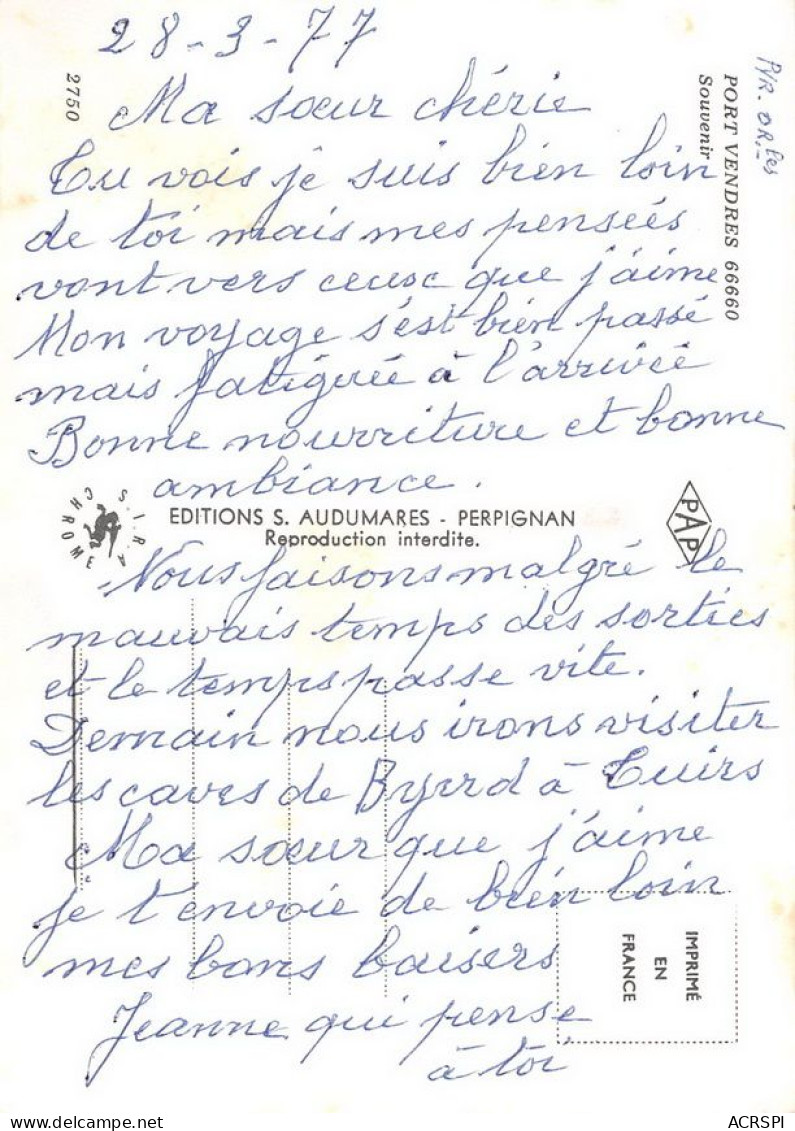 28-3-77
2750
PYR. OR.les
PORT VENDRES 66660
Souvenir
Ma sœur chérie
Tu vois je suis bien loin
de toi mais mes pensées
vont vers ceux que j'aime
Mon voyage s'est bien passé
mais fatiguée à l'arrivée
Bonne nourriture et bonne
ambiance.
S.I.R.A.
CHROME
EDITIONS S. AUDUMARES - PERPIGNAN
Reproduction interdite.
PAP
Nous faisons malgré le
mauvais temps des sorties
et le temps passe vite.
Demain nous irons visiter
les caves de Byrrd à Tuirs
Ma sœur que j'aime
je t'envoie de bien loin
mes bons baisers
IMPRIMÉ
EN
FRANCE
Jeanne qui pense
à toi
ACRSPI